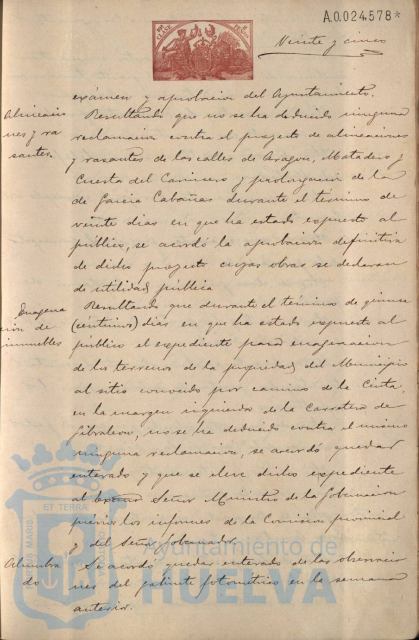 A.0.024.578*
Veinte y cinco
exámen y aprobacion del Ayuntamiento.
Alineacio
nes y ra
santes.
Resultando que no se ha deducido ninguna
reclamacion contra el proyecto de alineaciones
y rasantes de las calles de Aragon, Matadero y
Cuesta del Carnicero y prolongacion de la
de Garcia Cabañas durante el termino de
veinte dias en que ha estado expuesto al
público, se acordó la aprobacion definitiva
de dicho proyecto cuyas obras se declaran
de utilidad pública
Enagena
cion de
inmuebles
Resultando que durante el término de quince
dias en que ha estado expuesto al
público el expediente para enagenacion
de los terrenos de la propiedad del Municipio
al sitio conocido por camino de la Cinta,
en la margen izquierda de la Carretera de
Gibraleon, no se ha deducido contra el mismo
ninguna reclamacion, se acordó quedar
enterado y que se eleve dicho expediente
al Excmo Señor Ministro de la Gobernacion
previos los informes de la Comision provincial
y del Señor Gobernador.
Alumbra
do
Se acordó quedar enterado de las observacio
nes del gabinete fotometrico en la semana
anterior.
Ayuntamiento de
HUELVA